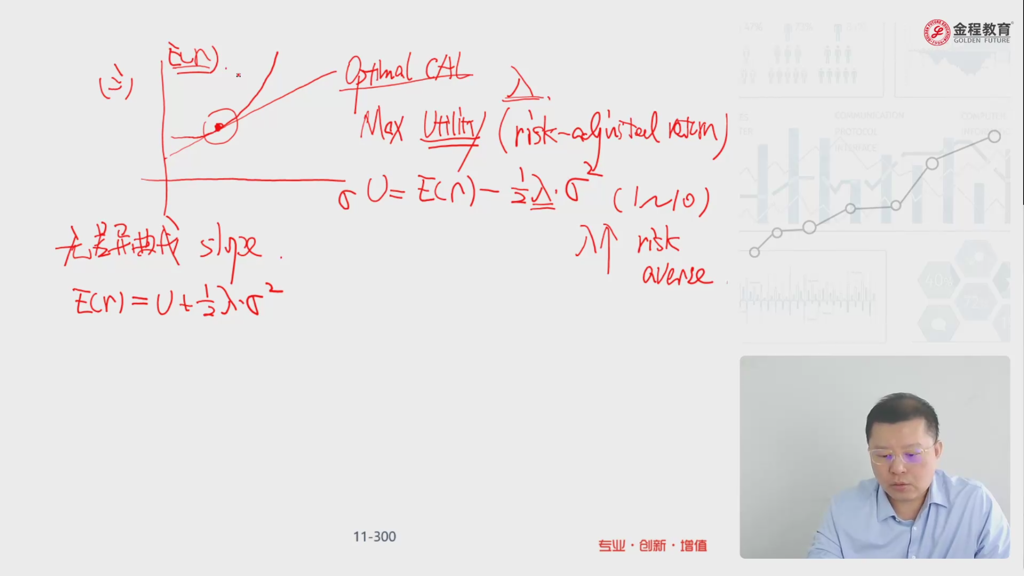 金程教育
GOLDEN FUTURE
(三)
E(r).
Optimal CAL
λ.
Max Utility (risk-adjusted return)
σ
U = E(r) - 1/2 λ·σ² (1~10)
λ↑ risk
averse.
无差异曲线 slope.
E(r) = U + 1/2 λ·σ²
11-300
专业·创新·增值